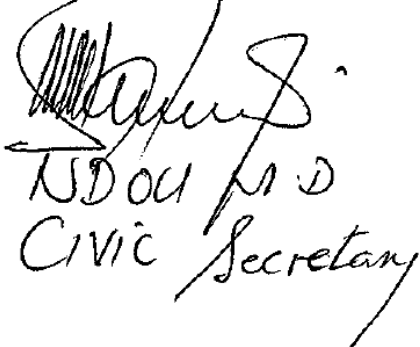 NDOU M.D
Civic Secretary